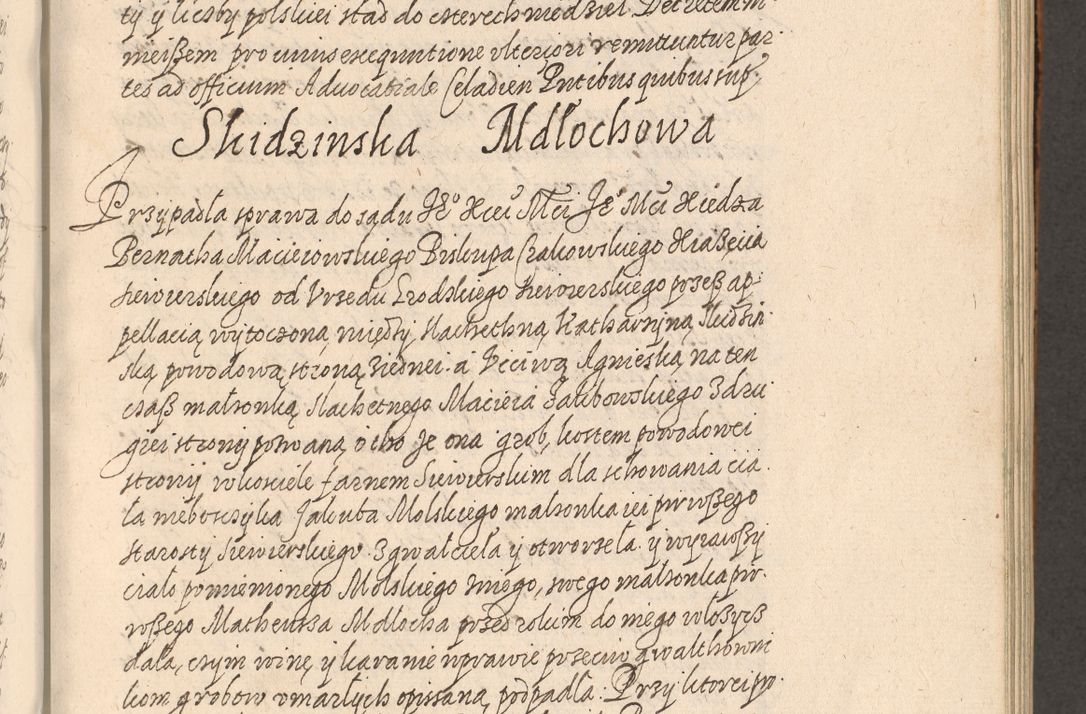 ty y liczby polskiei stąd do czterech niedziel. Decretem ni
nieiszem pro cuius exequutione vlteriori remittuntur par
tes ad officium Aduocatiale Celadien Entibus quibus sup.
Skidzinska Mdłochowa
Przypadła sprawa do sądu Je° Xcei Mci Je° Mci Xiedza
Bernatha Macieiowskiego Biskupa Crakowskiego Xiążęcia
Siewierskiego od Vrzedu Grodzkiego Siewierskiego przeß ap-
pellacią wytoczoną między slachethną Katharzyną Skidzin
ską powodową stroną ziednei. a Vcciwą Agnieską na ten
czaß małzonką slachetnego Macieia Załibowskiego z dru
giei strony pozwaną, o tho Je ona grob, kostem powodowei
strony w kosciele farnem Siewierskim dla schowania cia
ła nieboszczyka Jakuba Molskiego małzonka iei pirwßego
starosty Siewierskiego. zgwałciela y otworzeła. y wyiąwßy
ciało pomienionego Molskiego zniego, swego małzonka pir
wßego Matheusza Mdłocha przed rokim do niego włożycz
dała, czym winę y karanie wprawie przeciw gwalthowni
kom grobow vmarłych opissaną podpadła. Przy ktorei po